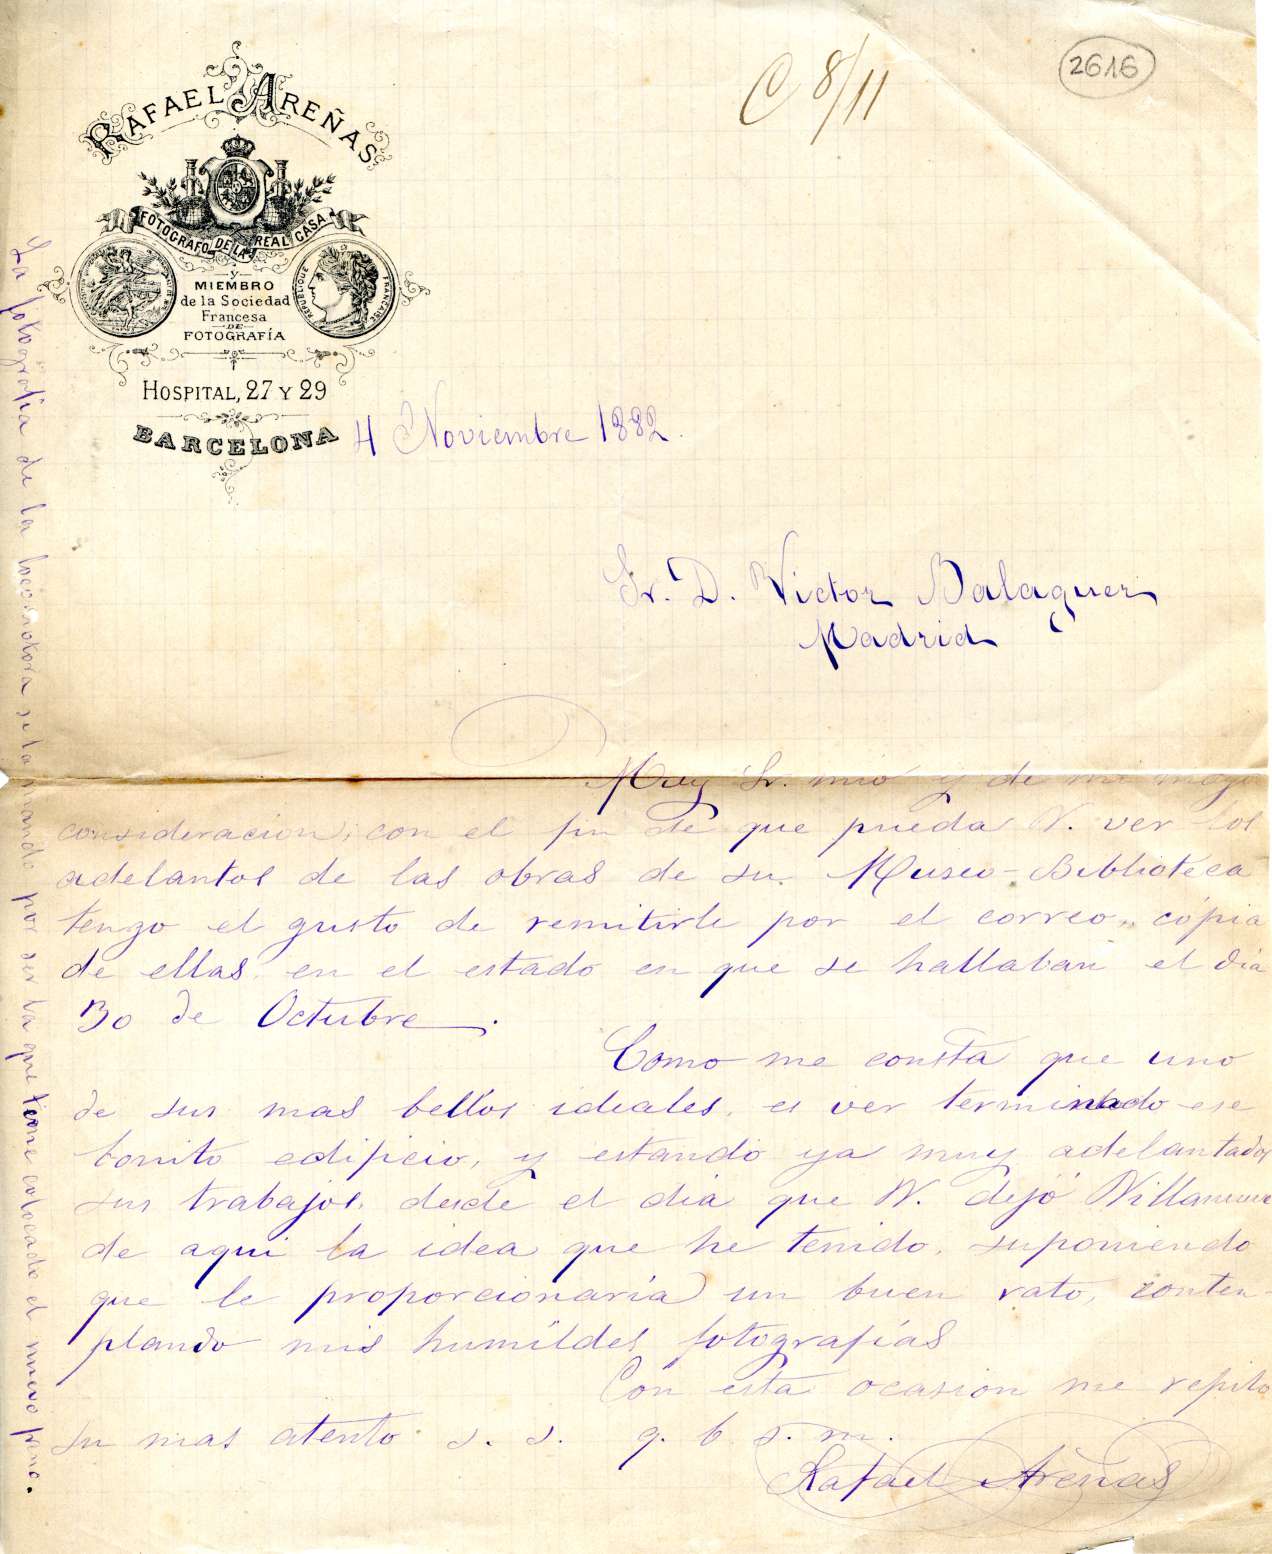 2616
C 8/11
RAFAEL AREÑAS
FOTÓGRAFO DE LA REAL CASA
Y
MIEMBRO
de la Sociedad
Francesa
DE
FOTOGRAFÍA
REPUBLIQUE FRANÇAISE
HOSPITAL, 27 Y 29
BARCELONA
4 Noviembre 1882.
Sr. D. Victor Balaguer
Madrid
Muy Sr. mio y de mi mayor
consideracion; con el fin de que pueda V. ver los
adelantos de las obras de su Museo-Biblioteca
tengo el gusto de remitirle por el correo, cópia
de ellas en el estado en que se hallaban el dia
30 de Octubre.
Como me consta que uno
de sus mas bellos ideales, es ver terminado ese
bonito edificio, y estando ya muy adelantados
sus trabajos, desde el dia que V. dejó Villanueva
de aqui la idea que he tenido, suponiendo
que le proporcionaria un buen rato, conten-
plando mis humildes fotografías
Con esta ocasion me repito
su mas atento s. s. q. b. s. m.
Rafael Areñas
La fotografia de la locomotora se la mando por ser la que tiene colocado el nuevo